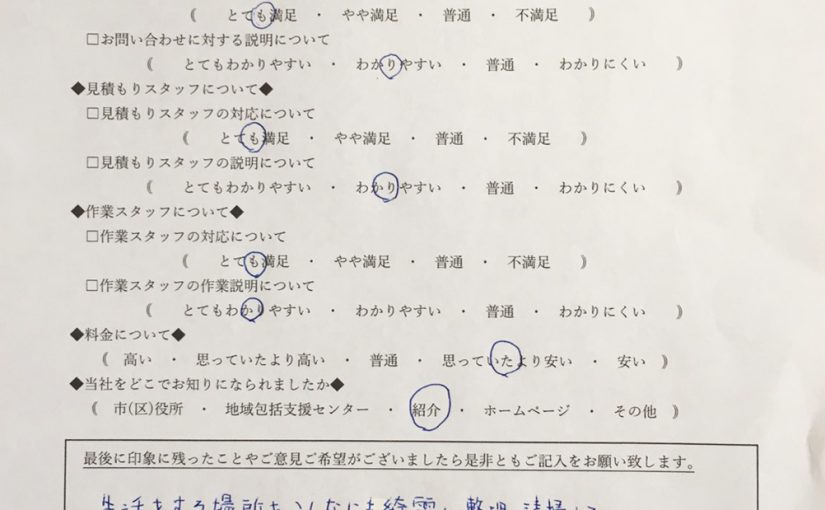 《 とても満足 ・ やや満足 ・ 普通 ・ 不満足 》
□お問い合わせに対する説明について
《 とてもわかりやすい ・ わかりやすい ・ 普通 ・ わかりにくい 》
◆見積もりスタッフについて◆
□見積もりスタッフの対応について
《 とても満足 ・ やや満足 ・ 普通 ・ 不満足 》
□見積もりスタッフの説明について
《 とてもわかりやすい ・ わかりやすい ・ 普通 ・ わかりにくい 》
◆作業スタッフについて◆
□作業スタッフの対応について
《 とても満足 ・ やや満足 ・ 普通 ・ 不満足 》
□作業スタッフの作業説明について
《 とてもわかりやすい ・ わかりやすい ・ 普通 ・ わかりにくい 》
◆料金について◆
《 高い ・ 思っていたより高い ・ 普通 ・ 思っていたより安い ・ 安い 》
◆当社をどこでお知りになられましたか◆
《 市(区)役所 ・ 地域包括支援センター ・ 紹介 ・ ホームページ ・ その他 》
最後に印象に残ったことやご意見ご希望がございましたら是非ともご記入をお願い致します。
生活をする場所を